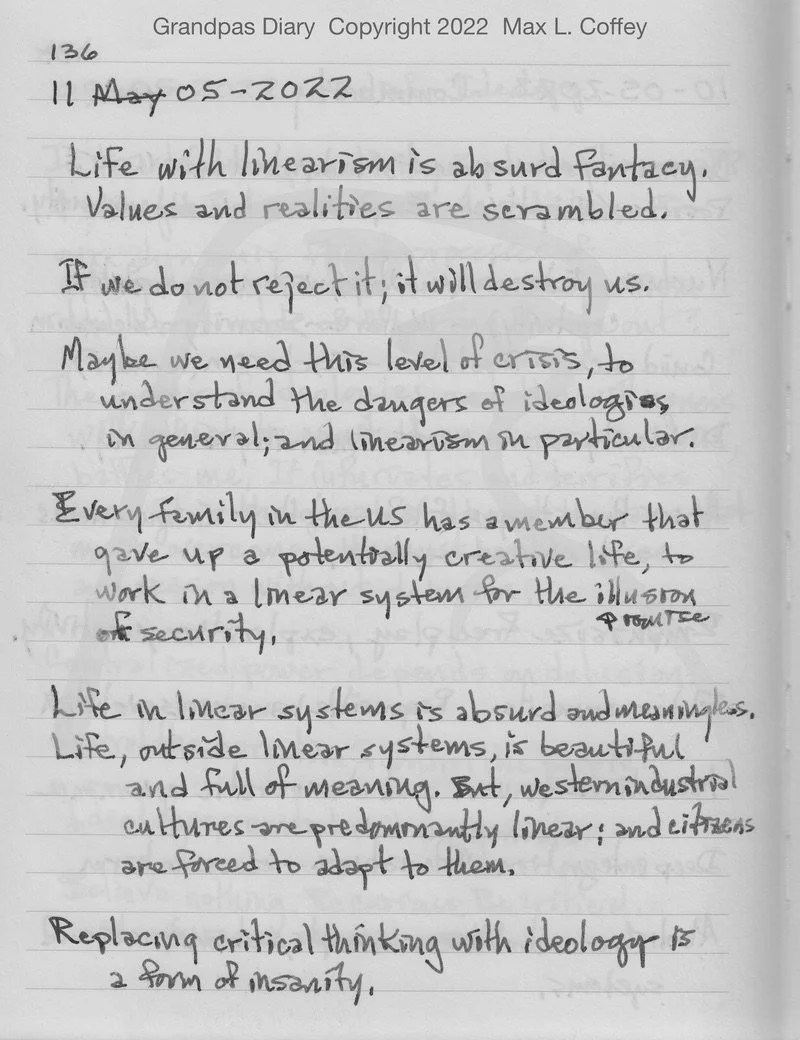 Grandpas Diary Copyright 2022 Max L. Coffey
136
11 May 05-2022
Life with linearism is absurd fantacy.
Values and realities are scrambled.
If we do not reject it; it will destroy us.
Maybe we need this level of crisis, to
understand the dangers of ideologies,
in general; and linearism in particular.
Every family in the US has a member that
gave up a potentially creative life, to
work in a linear system for the illusion
promise
of security.
Life in linear systems is absurd and meaningless.
Life, outside linear systems, is beautiful
and full of meaning. But, western industrial
cultures are predominantly linear; and citizens
are forced to adapt to them.
Replacing critical thinking with ideology is
a form of insanity.